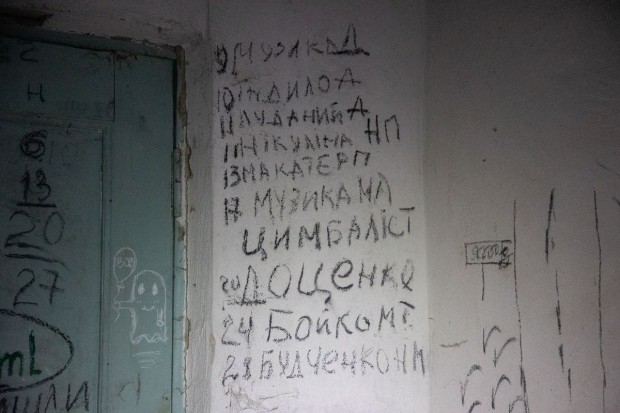 С
Н
6
13
20
27
BOO
ML
ШЛИ
9 МУЗИКА Д
10 ТКАЧ ДИЛО А
11 ЛУДАНИЙ А
11 НІКУЛІНА НП
13 МАКАТЕР П
17 МУЗИКА МЛ
ЦИМБАЛІСТ
20 ДОЦЕНКО
24 БОЙКО МТ
28 БУДЧЕНКО НМ